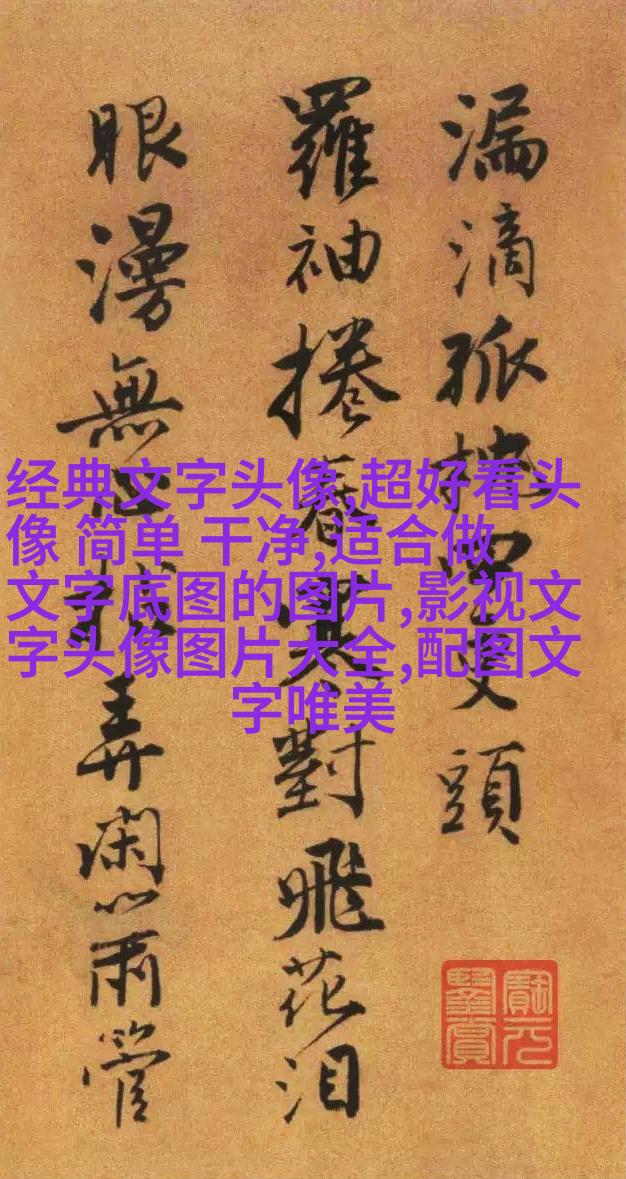 漏滴孤頭
羅袖捲春寒對飛花泪
眼漫無弄閑管
经典文字头像,超好看头
像 简单 干净,适合做
文字底图的图片,影视文
字头像图片大全,配图文
字唯美